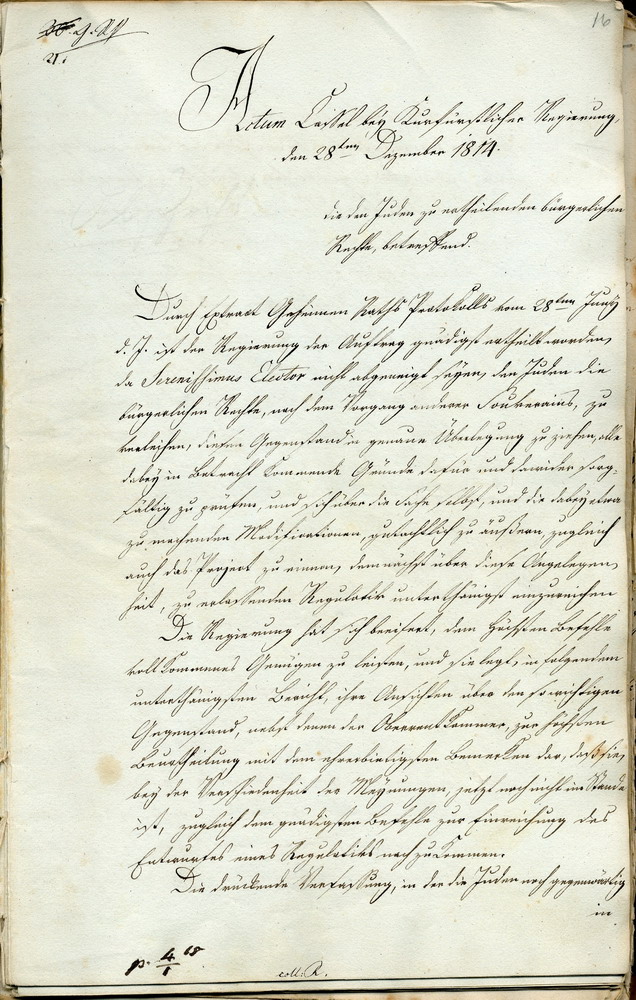 16
21.
Actum Cassel bey Kurfürstlicher Regierung,
den 28ten Dezember 1814.
die den Juden zu ertheilenden bürgerlichen
Rechte, betreffend.
Durch Extract Geheimen Raths Protokolls vom 28ten Juny
d. J. ist der Regierung der Auftrag gnädigst ertheilt worden,
da Serenissimus Elector nicht abgeneigt seyen, den Juden die
bürgerlichen Rechte, nach dem Vorgang anderer Souverains, zu
verleihen, diesen Gegenstand in genaue Überlegung zu ziehen, alle
dabey in Betracht kommende Gründe dafür und dawider sorg-
fältig zu prüfen, und sich über die Sache selbst, und die dabey etwa
zu machenden Modificationen, gutachtlich zu äußern, zugleich
auch das Project zu einem, demnächst über diese Angelegen-
heit, zu erlassenden Regulativ unterthänigst einzureichen
Die Regierung hat sich beeifert, dem Höchsten Befehle
vollkommenes Genügen zu leisten, und sie legt, in folgendem
unterthänigsten Bericht, ihre Ansichten über den so wichtigen
Gegenstand, nebst denen der Oberrentkammer, zur höchsten
Beurtheilung mit dem ehrerbietigsten Bemerken dar, daß sie,
bey der Verschiedenheit der Meynungen, jetzt noch nicht im Stande
ist, zugleich dem gnädigsten Befehle zur Einreichung des
Entwurfes eines Regulativs nachzukommen.
Die drückende Verfassung, in der die Juden noch gegenwärtig
in
p. 4/1 15
coll: R.